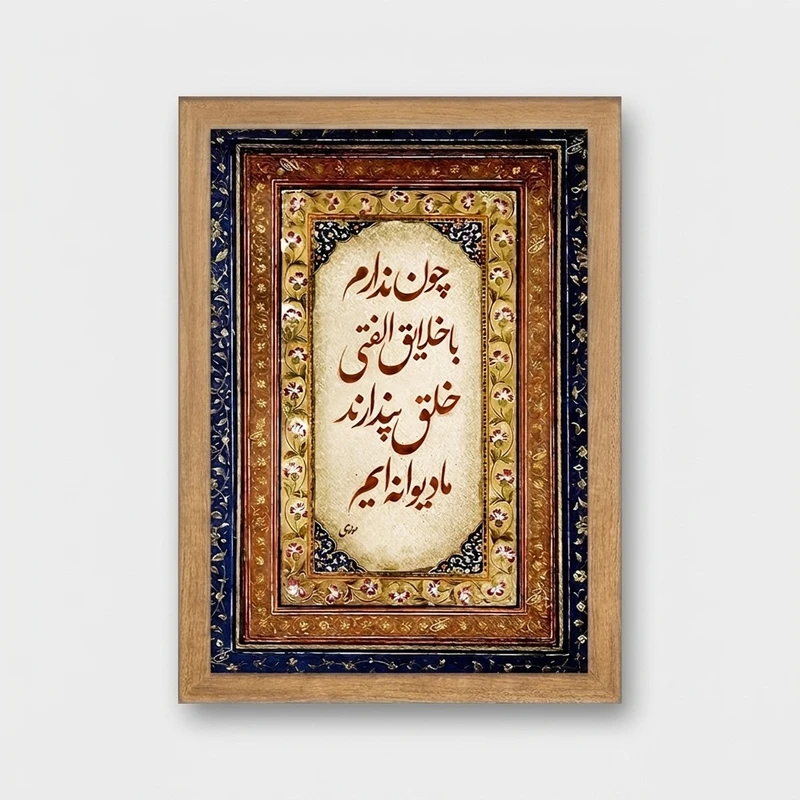 چون ندارم
با خلایق الفتی
خلق پندارند
ما دیوانه ایم